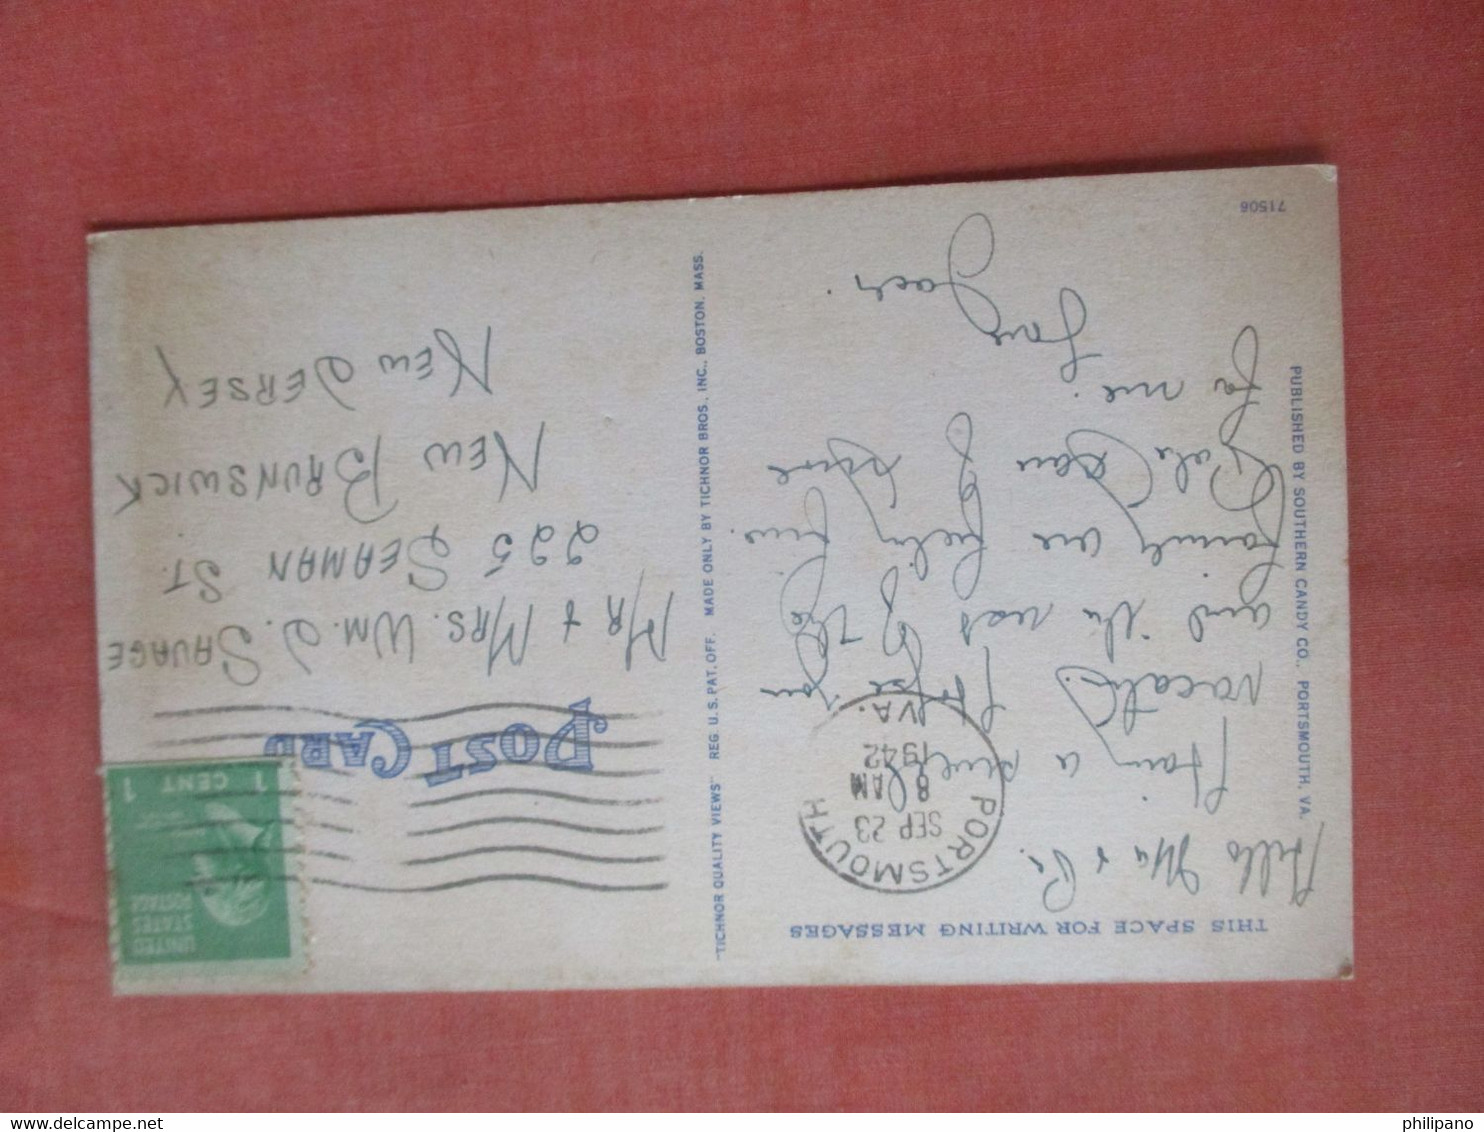 THIS SPACE FOR WRITING MESSAGES
Hello Ma & Pa.
Having a swell
vacation. Hope you
and the rest of the
family are feeling fine.
Pale Dan of mine
for me.
Love
Jack
71506
PUBLISHED BY SOUTHERN CANDY CO., PORTSMOUTH, VA.
"TICHNOR QUALITY VIEWS" REG. U.S. PAT. OFF. MADE ONLY BY TICHNOR BROS., INC., BOSTON, MASS.
PORTSMOUTH
SEP 23
8 AM
1942
VA.
POST CARD
UNITED
STATES
POSTAGE
1 CENT 1
MR & MRS. WM. J. SAVAGE
225 SEAMAN ST.
NEW BRUNSWICK
NEW JERSEY
philipano